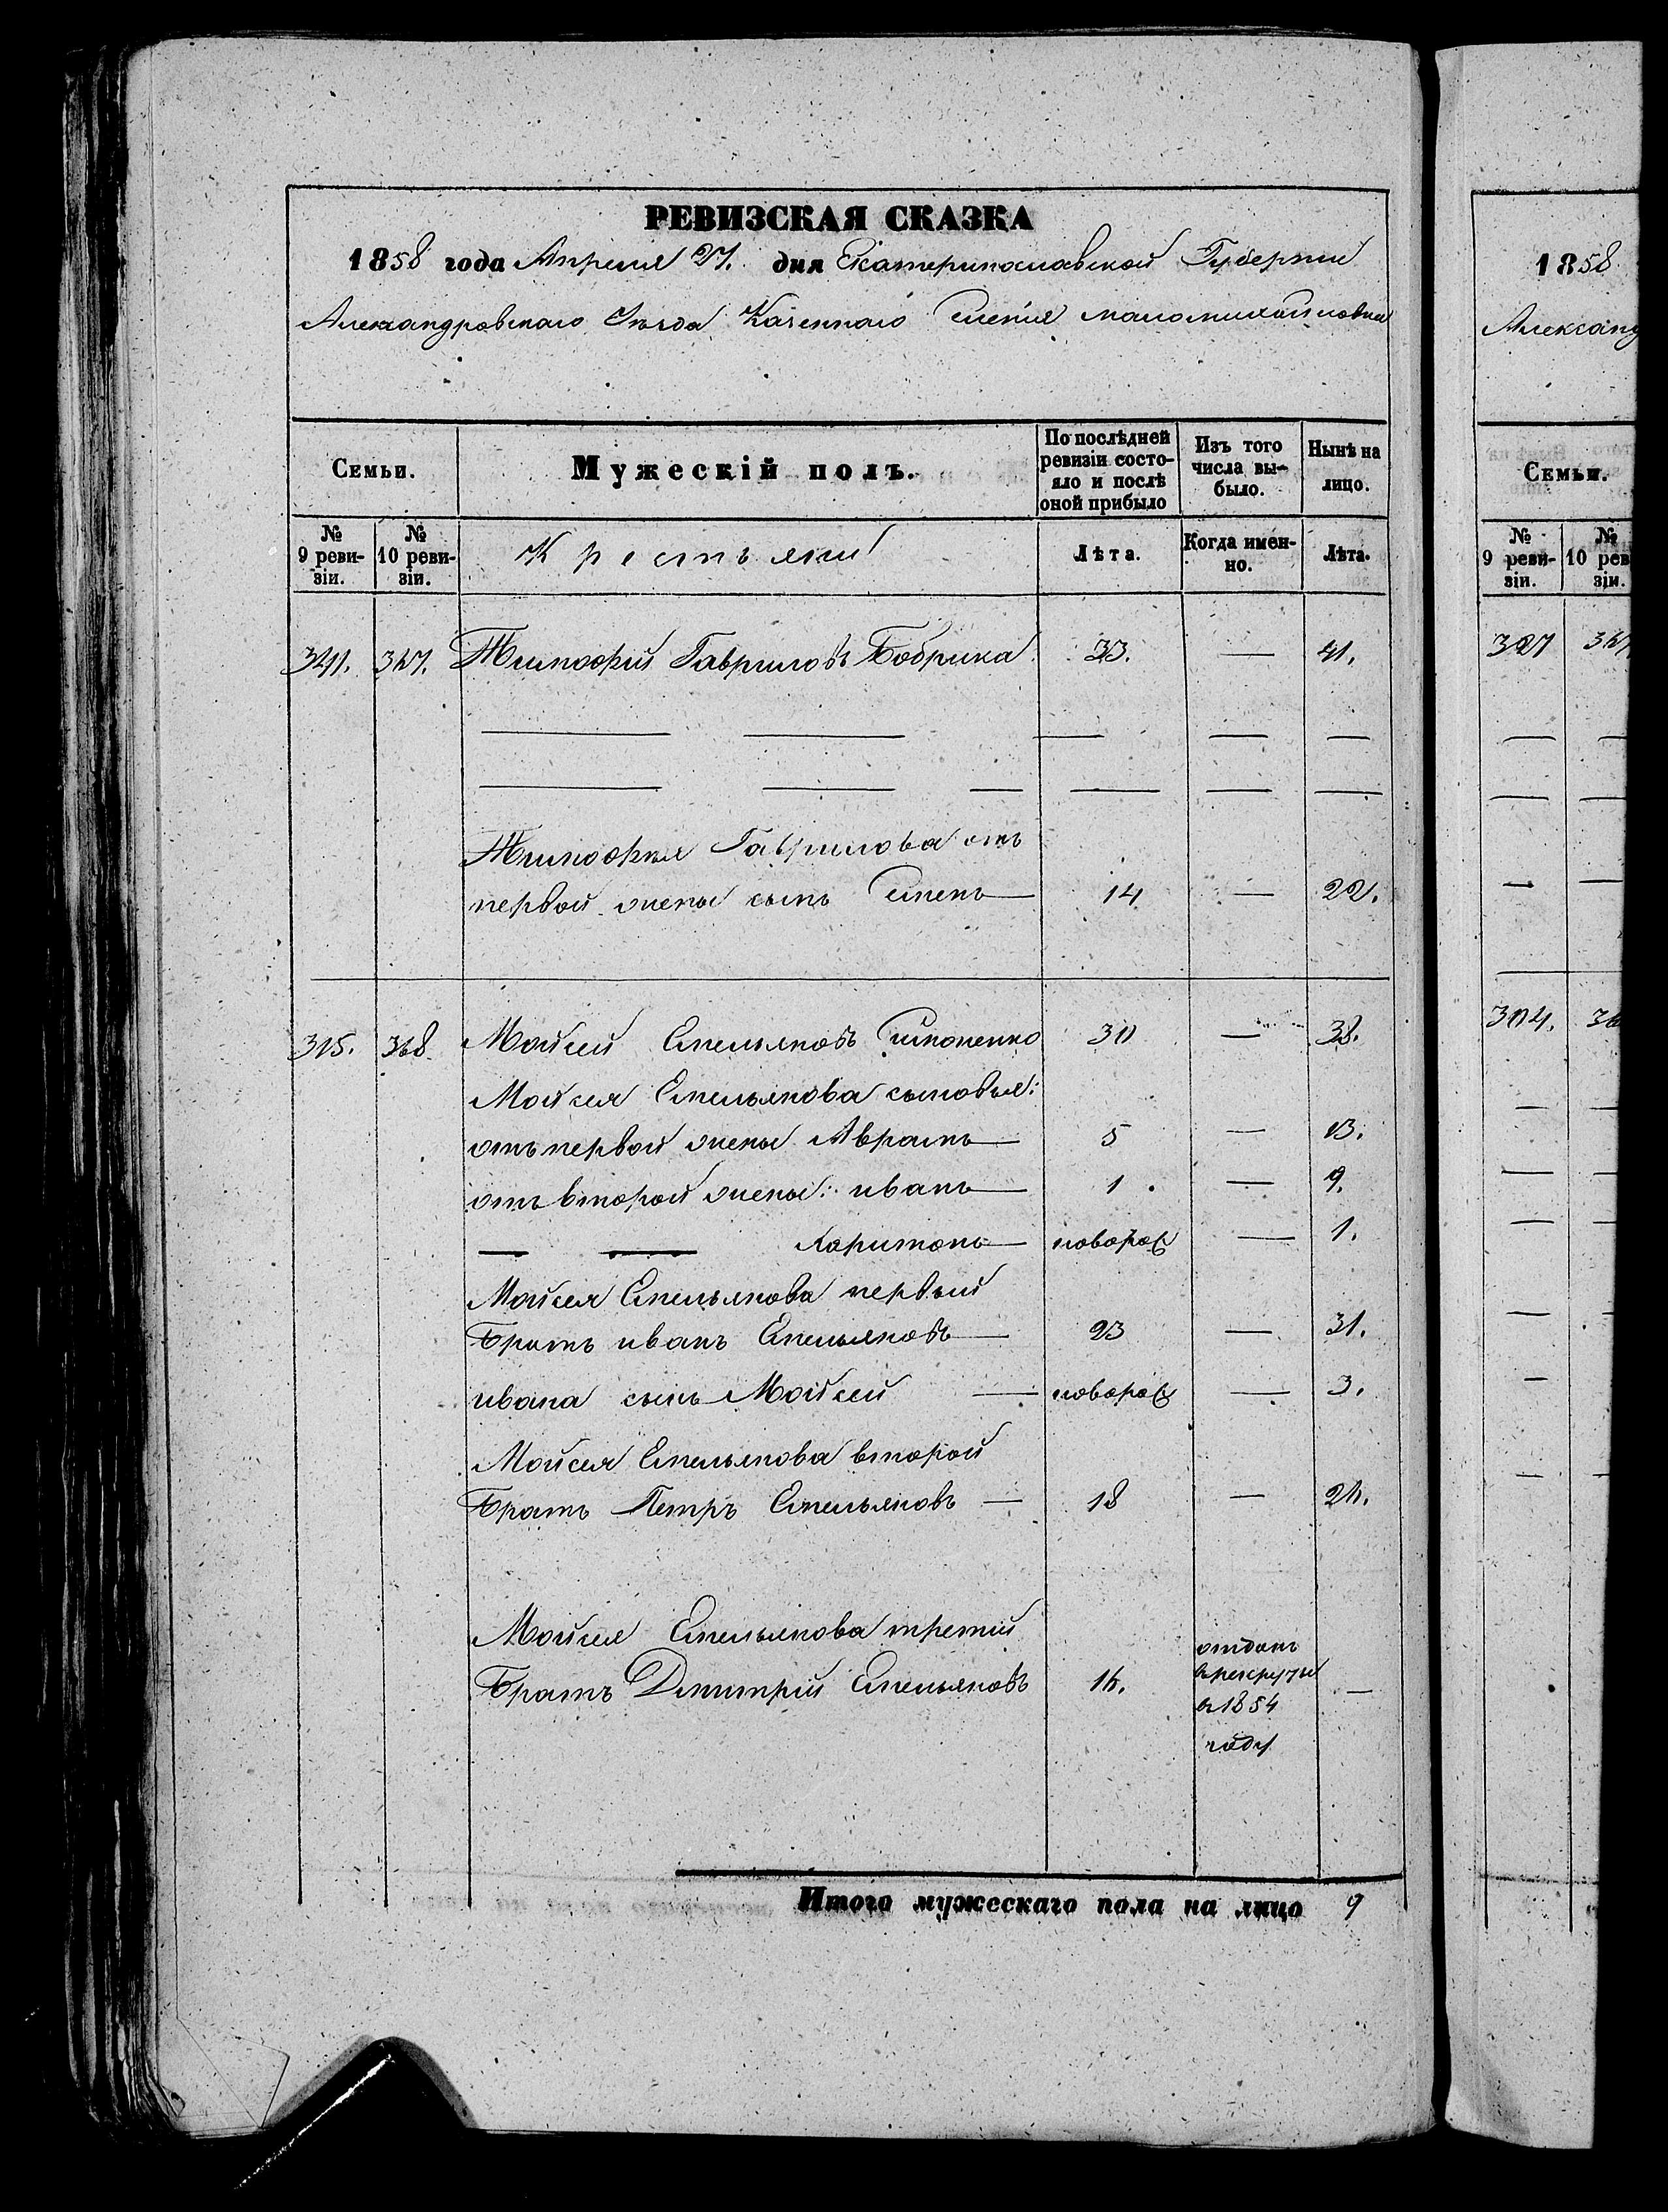 РЕВИЗСКАЯ СКАЗКА
1858 года Апреля 27. дня Екатеринославской Губерніи
Александровскаго Уѣзда Казеннаго Селенія маломихайловки
Семьи.
Мужескій полъ.
По послѣдней ревизіи состояло и послѣ оной прибыло
Изъ того числа выбыло.
Нынѣ на лицо.
№ 9 ревизіи.
№ 10 ревизіи.
Крестьяни
Лѣта.
Когда именно.
Лѣта.
341. 367. Тимофій Гавриловъ Бобрика 33. — 41.
Тимофія Гаврилова отъ
первой жены сынъ Семенъ — 14 — 22.
315. 368. Мойсей Емельяновъ Симоненко 30 — 38.
Мойсея Емельянова сыновья:
отъ первой жены Аврамъ — 5 — 13.
отъ второй жены: иванъ — 1 — 9.
— — Харитонъ — новорож — 1.
Мойсея Емельянова первый
Братъ иванъ Емельяновъ — 23 — 31.
ивана сынъ Мойсей — новорож — 3.
Мойсея Емельянова второй
Братъ Петръ Емельяновъ — 18 — 26.
Мойсея Емельянова третій
Братъ Дмитрій Емельяновъ 16. —
отданъ
в рекруты
в 1854
году
Итого мужескаго пола на лицо 9
1858
Александ
Семьи.
№ 9 ревизіи.
№ 10 рев зіи.
327 367
304. 36